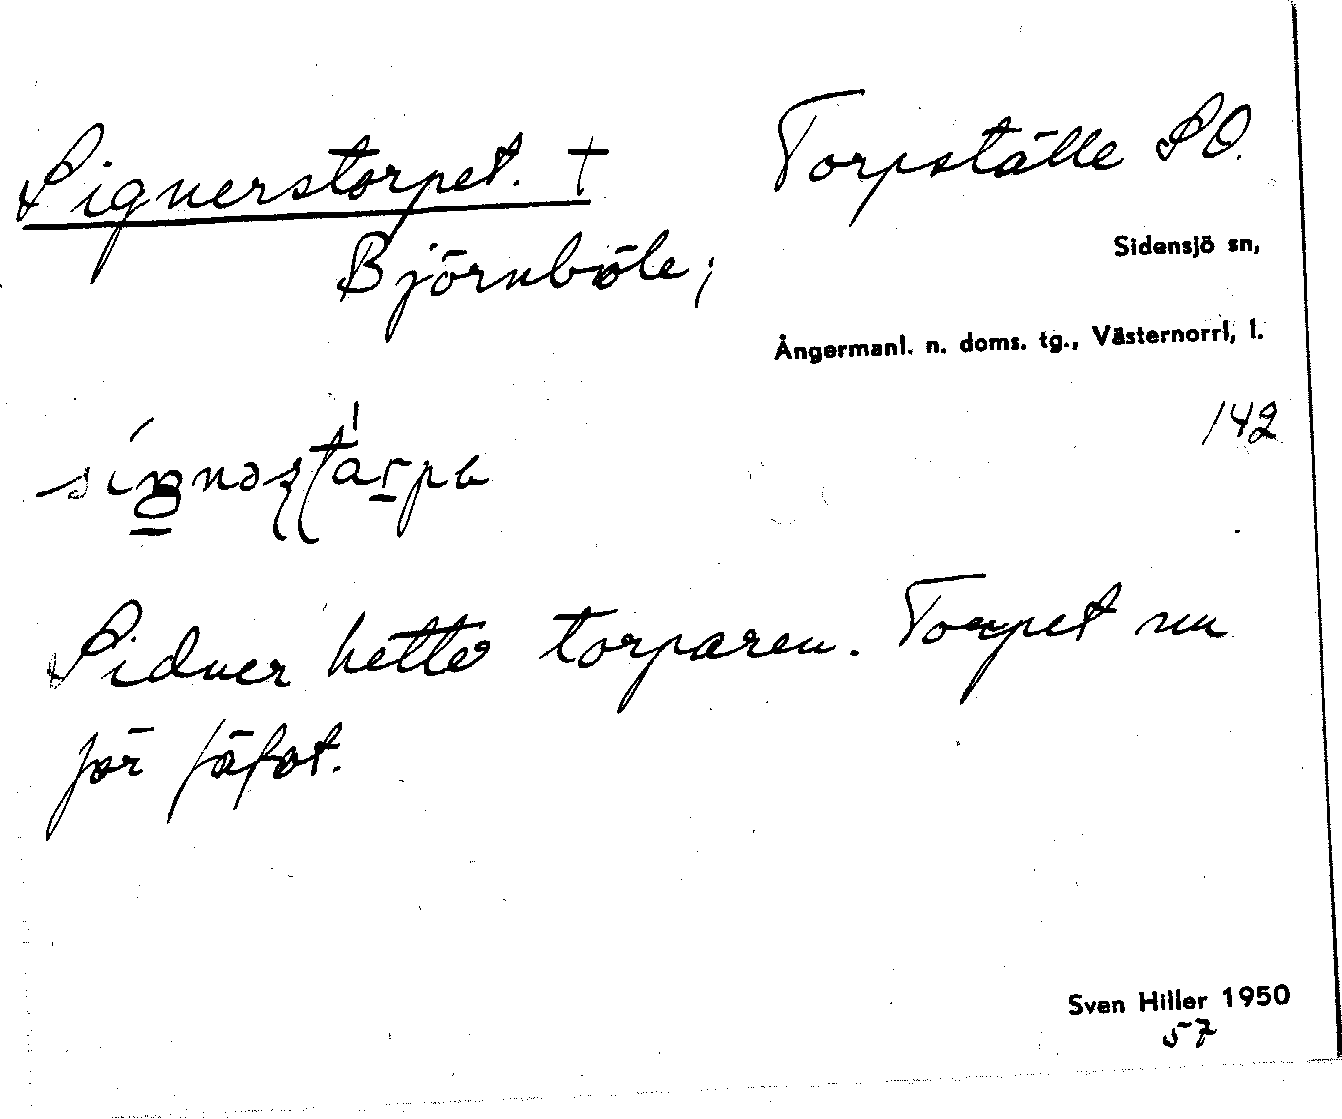 Signerstorpet. †
Torpställe SO.
Björnböle;
Sidensjö sn,
Ångermanl. n. doms. tg., Västernorrl, l.
142
Sidner hette torparen. Torpet nu
för fäfot.
Sven Hiller 1950
57